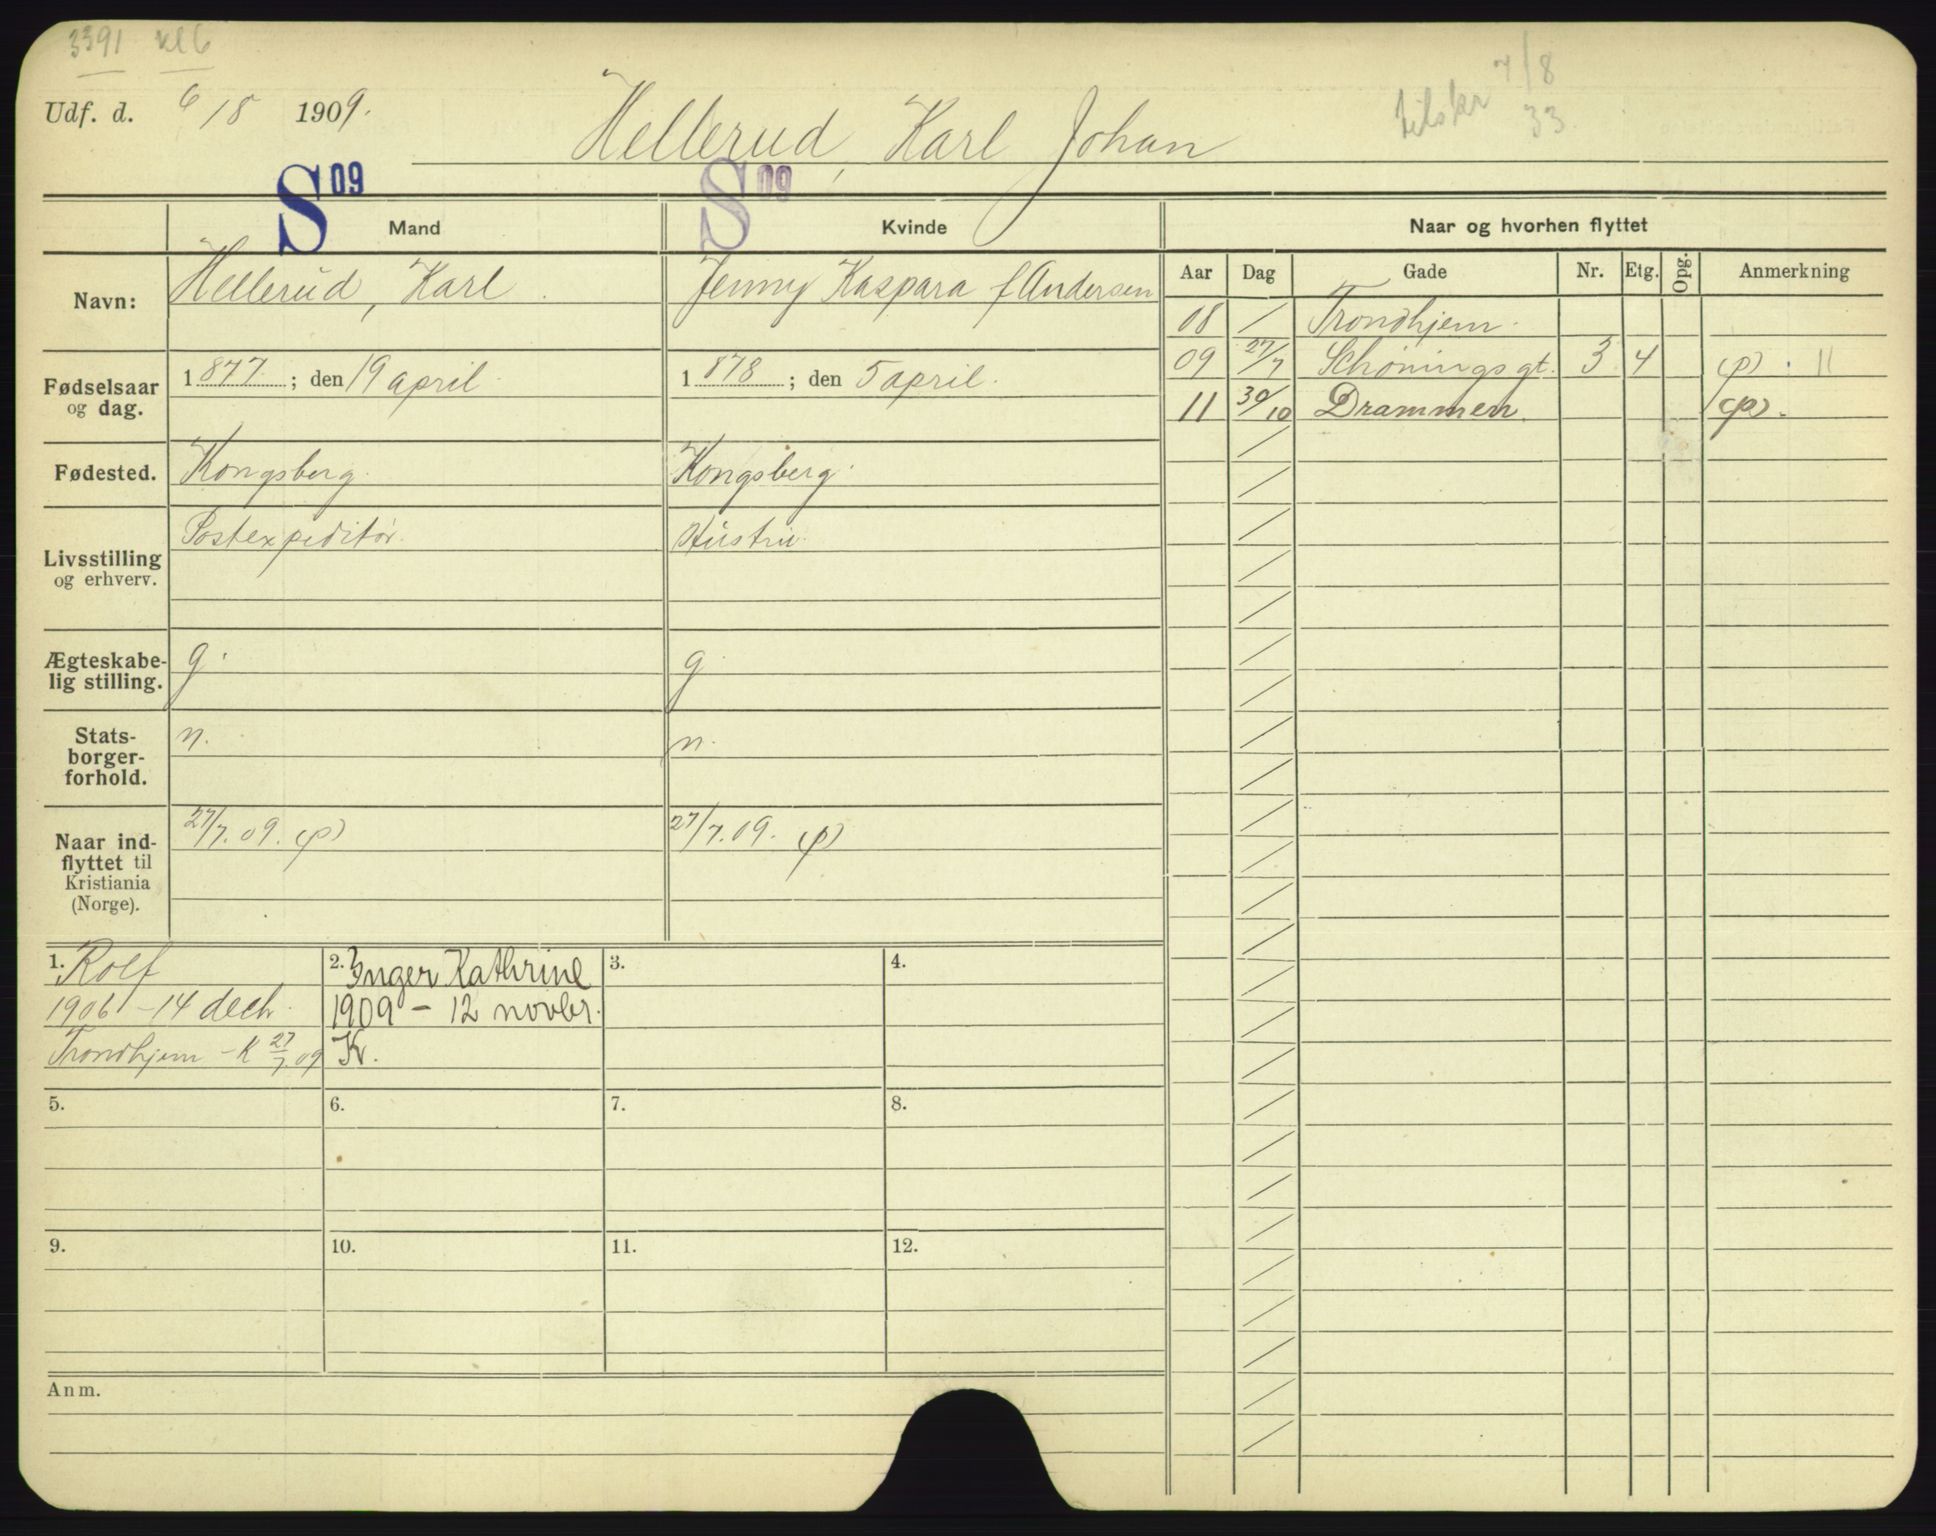 3391 kl 6
Udf. d. 6/8 1909.
Hellerud, Karl Johan
tilskr 7/8 33
S 09
S 09
Mand
Kvinde
Naar og hvorhen flyttet
Aar Dag Gade Nr. Etg. Opg. Anmerkning
Navn: Hellerud, Karl. Jenny Kaspara f Andersen
08 / Trondhjem.
09 27/7 Schøningsgt. 3 4 (p). 11
11 30/10 Drammen. (p).
Fødselsaar og dag.
1877; den 19 april.
1878; den 5 april.
Fødested. Kongsberg. Kongsberg.
Livsstilling og erhverv.
Postexpeditør. Hustru.
Ægteskabe-
lig stilling.
g. g
Stats-
borger-
forhold.
n. n.
Naar ind-
flyttet til
Kristiania
(Norge).
27/7.09. (p) 27/7.09. (p)
1. Rolf
1906 - 14 decb.
Trondhjem - K 27/7.09
2. Inger Kathrine
1909 - 12 novbr.
K.
3.
4.
5.
6.
7.
8.
9.
10.
11.
12.
Anm.